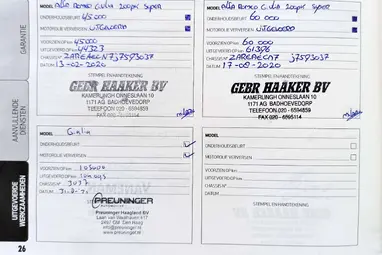 GARANTIE
AANVULLENDE
DIENSTEN
UITGEVOERDE
WERKZAAMHEDEN
26
MODEL Alfa Romeo Giulia 200pk Super
ONDERHOUDSBEURT 45000
MOTOROLIE VERVERSEN UITGEVOERD
VOORZIEN OP km 45000
UITGEVOERD OP km 44323
CHASSIS Nº
DATUM 13-02-2020
STEMPEL EN HANDTEKENING
GEBR HAAKER BV
KAMERLINGH ONNESLAAN 10
1171 AG BADHOEVEDORP
TELEFOON 020 - 6594859
FAX 020-6595114
MODEL Alfa Romeo Giulia 200pk Super
ONDERHOUDSBEURT 60 000
MOTOROLIE VERVERSEN UITGEVOERD
VOORZIEN OP km 60 000
UITGEVOERD OP km 61396
CHASSIS Nº
DATUM 17-08-2020
STEMPEL EN HANDTEKENING
GEBR HAAKER BV
KAMERLINGH ONNESLAAN 10
1171 AG BADHOEVEDORP
TELEFOON 020 - 6594859
FAX 020-6595114
MODEL Giulia
ONDERHOUDSBEURT
MOTOROLIE VERVERSEN
VOORZIEN OP km 105000
UITGEVOERD OP km
CHASSIS Nº 3037
DATUM
PREUNINGER
Preuninger Haaglanden BV
Laan van Waalhaven 217
2497 GM Den Haag
info@preuninger.nl
www.preuninger.nl
PREUNINGER
MODEL
ONDERHOUDSBEURT
MOTOROLIE VERVERSEN
VOORZIEN OP km
UITGEVOERD OP km
CHASSIS Nº
DATUM
STEMPEL EN HANDTEKENING